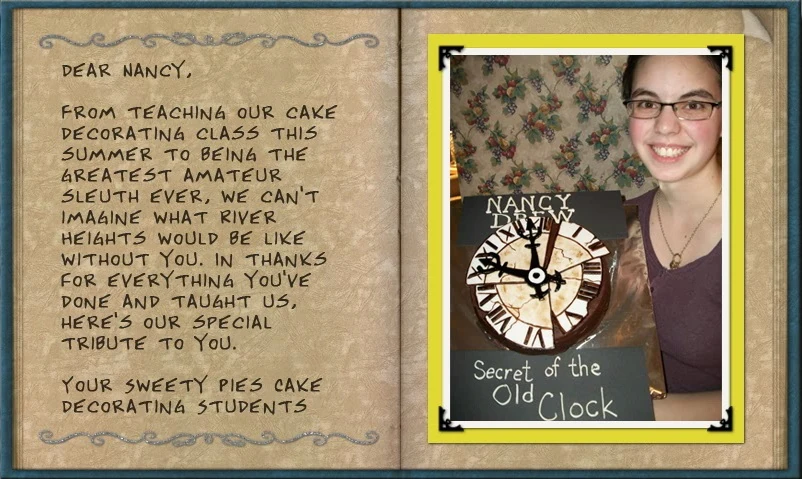 DEAR NANCY,
FROM TEACHING OUR CAKE
DECORATING CLASS THIS
SUMMER TO BEING THE
GREATEST AMATEUR
SLEUTH EVER, WE CAN'T
IMAGINE WHAT RIVER
HEIGHTS WOULD BE LIKE
WITHOUT YOU. IN THANKS
FOR EVERYTHING YOU'VE
DONE AND TAUGHT US,
HERE'S OUR SPECIAL
TRIBUTE TO YOU.
YOUR SWEETY PIES CAKE
DECORATING STUDENTS
NANCY
DREW
Secret of the
Old Clock